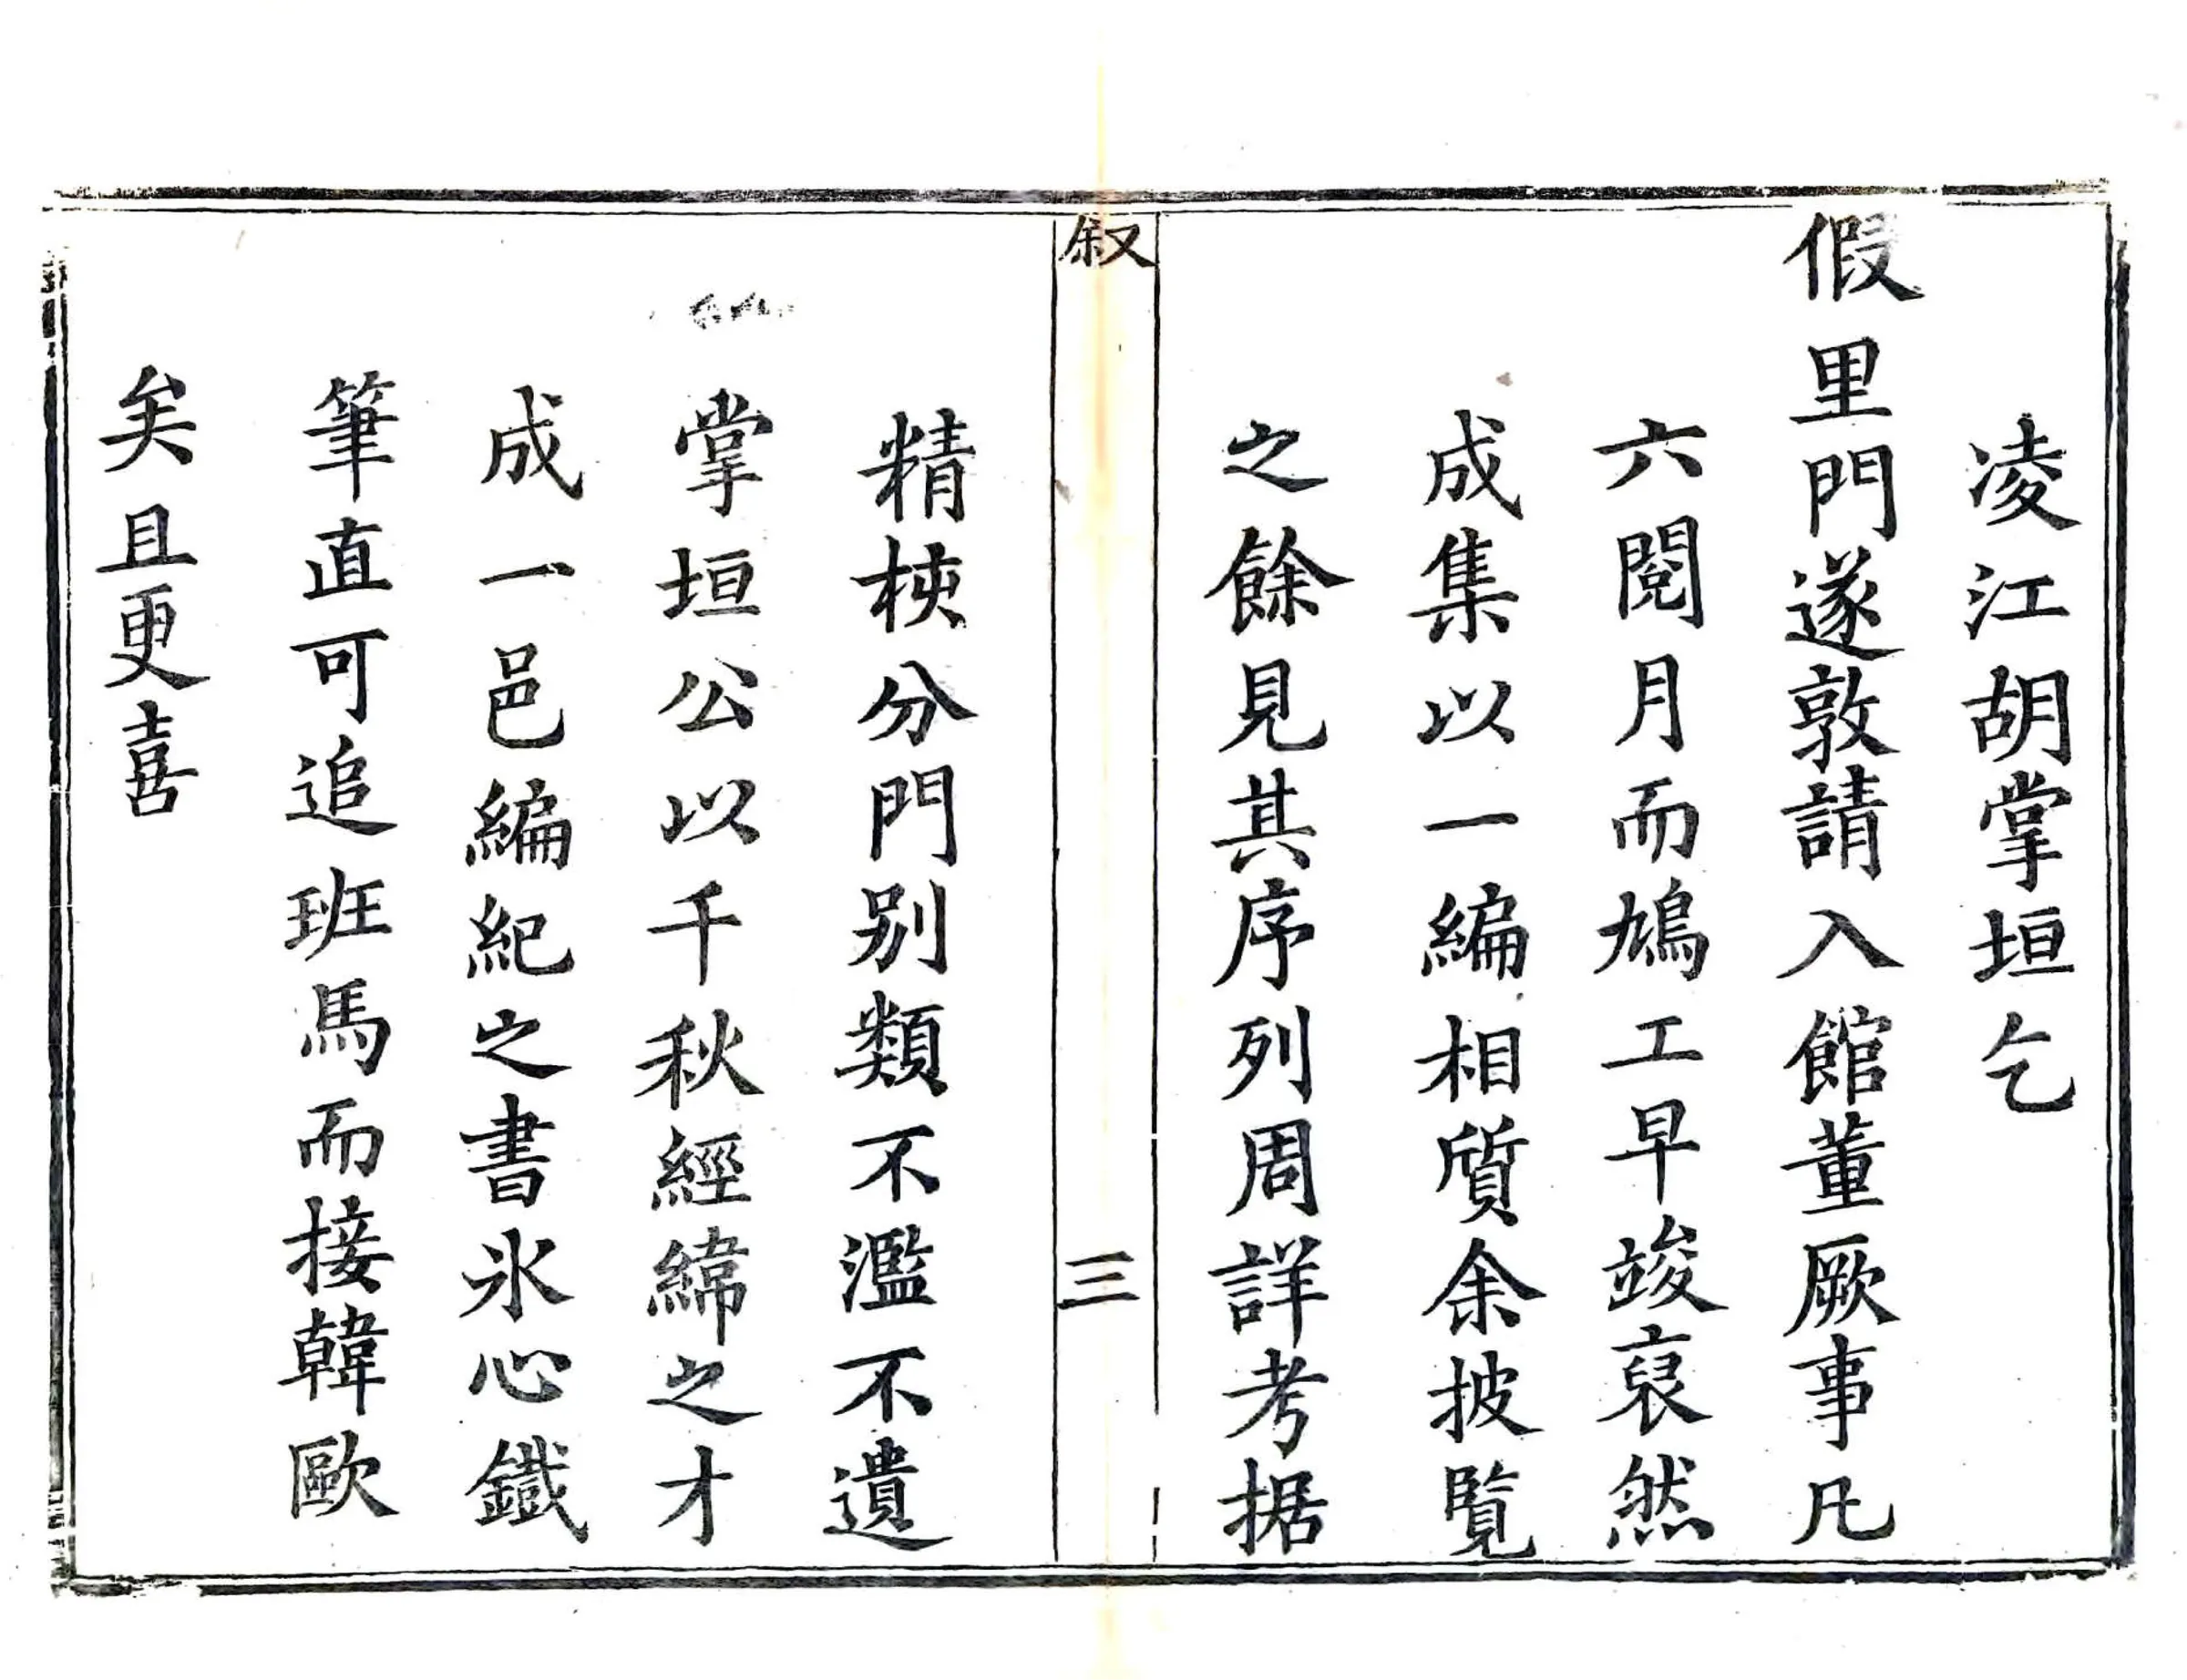 凌江胡掌垣乞
假里門遂敦請入館董厥事凡
六閱月而鳩工早竣裒然
成集以一編相質余披覧
之餘見其序列周詳考据
叙
三
精核分門别類不濫不遺
掌垣公以千秋經緯之才
成一邑編紀之書氷心鐵
筆直可追班馬而接韓歐
矣且更喜